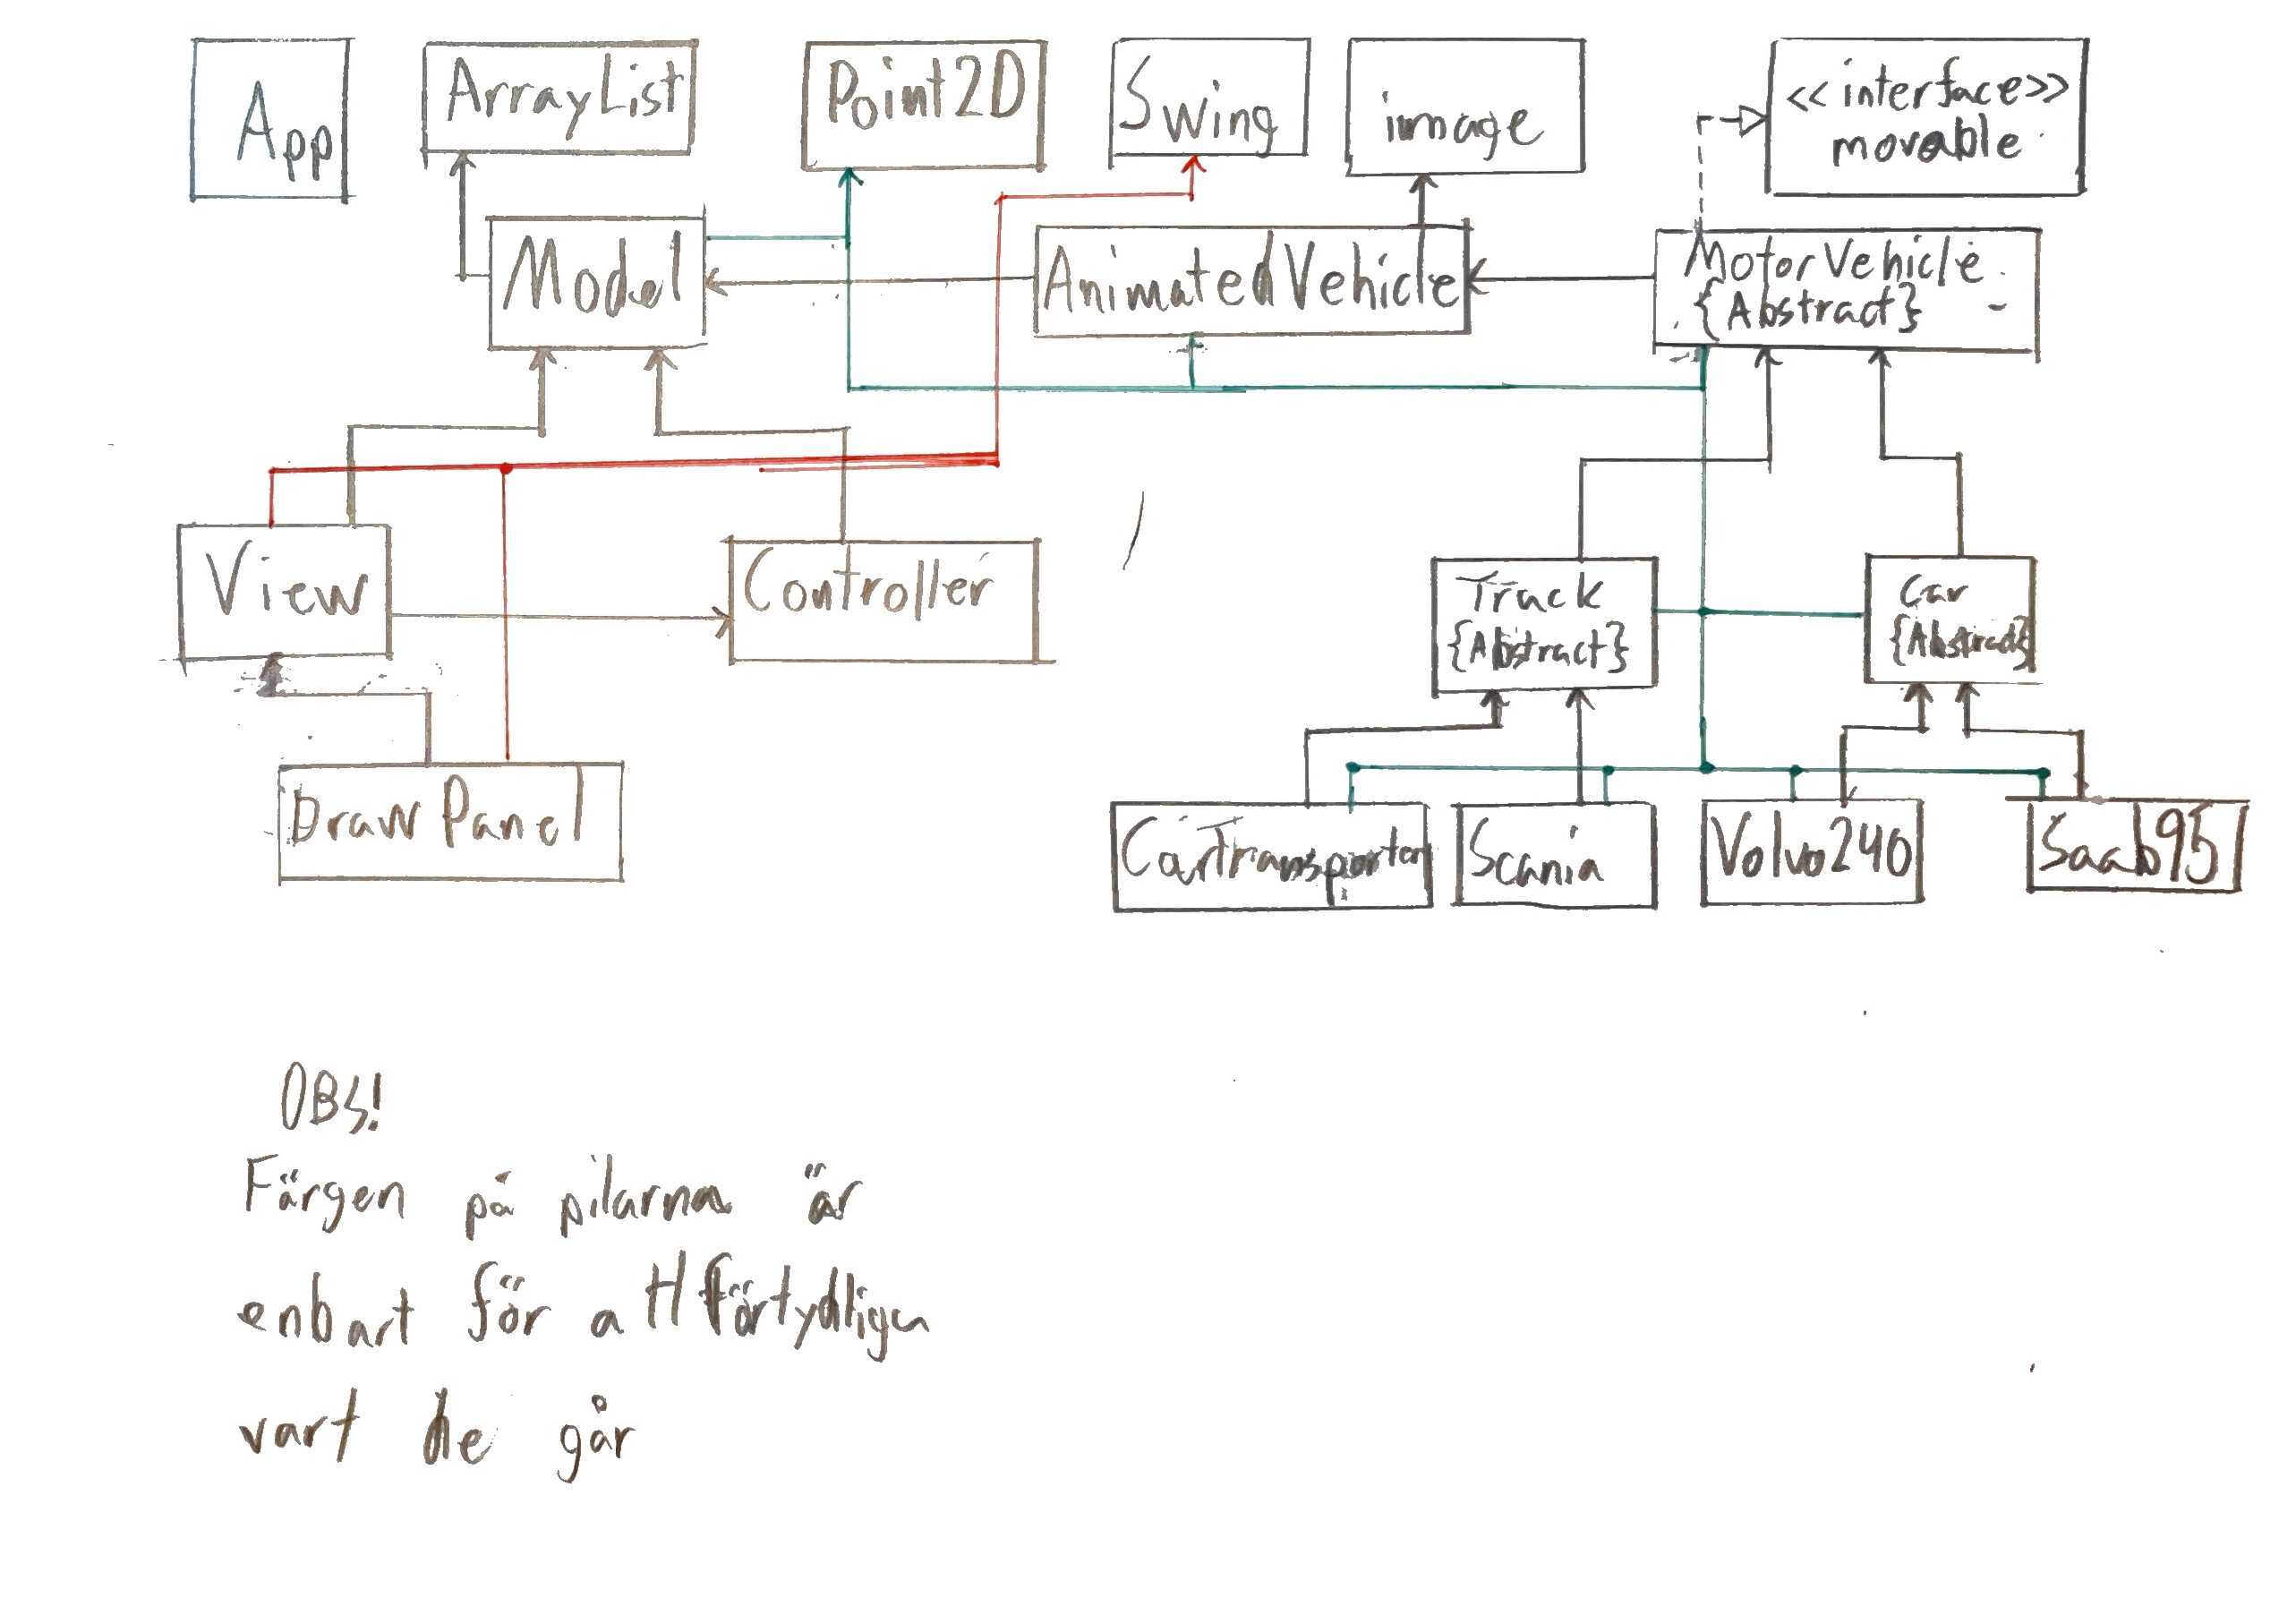 App
ArrayList
Point2D
Swing
image
<<interface>>
movable
Model
AnimatedVehicle
MotorVehicle
{Abstract}
View
Controller
Track
{Abstract}
Car
{Abstract}
DrawPanel
CarTransporter
Scania
Volvo240
Saab95
OBS!
Färgen på pilarna är
enbart för att förtydliga
vart de går